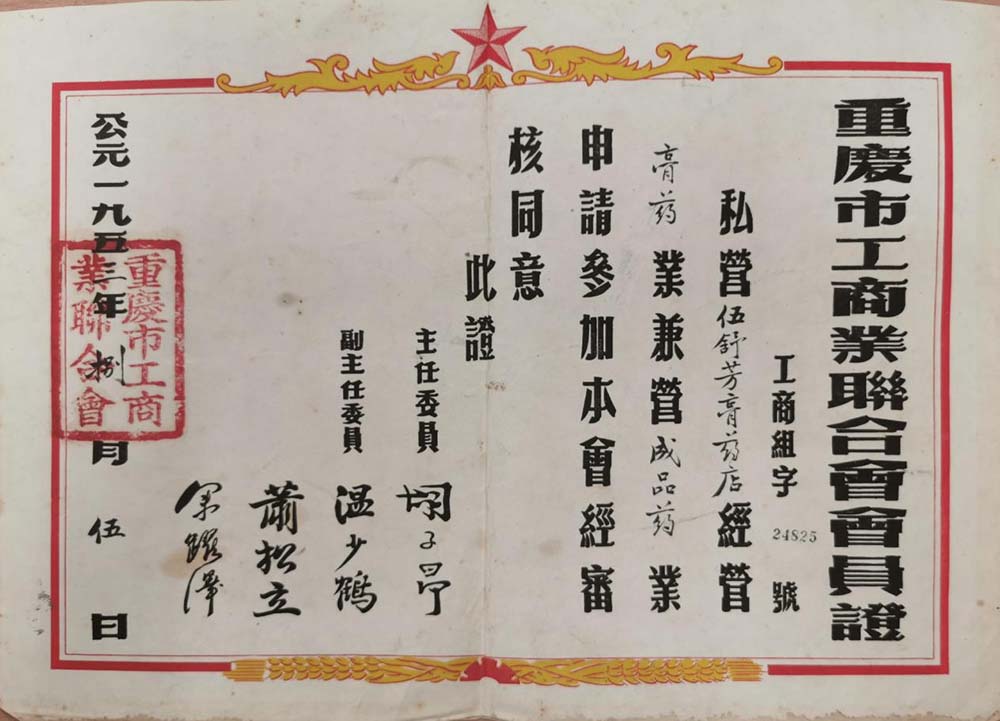 重慶市工商業聯合會會員證
工商組字 24825 號
私營伍舒芳膏药店經營
膏药業兼營成品药業
申請參加本會經審
核同意
此證
主任委員 胡子昂
副主任委員 温少鶴
蕭松立
公元一九五三年捌月伍日
重慶市工商
業聯合會